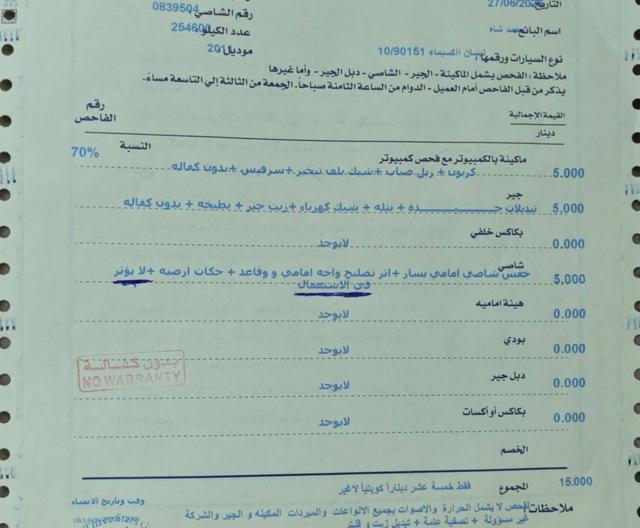 التاريخ 27/06/20
رقم الشاصي 0839504
اسم البائع محمد شاه
عدد الكيلو 254600
نوع السيارات ورقمها: نيسان اكسيماء 10/90151
موديل 201
ملاحظة: الفحص يشمل الماكينة - الجير - الشاصي - دبل الجير - وأما غيرها
يذكر من قبل الفاحص أمام العميل - الدوام من الساعة الثامنة صباحاً. الجمعة من الثالثة إلى التاسعة مساءً.
القيمة الإجمالية
دينار
رقم الفاحص
النسبة
ماكينة بالكمبيوتر مع فحص كمبيوتر
70%
5.000 كربون + ربل صباب + شيك بلف تبخير + سرفيس + بدون كفاله
جير
5,000 تبديلات جيدة + نتله + شيك كهرباء + زيت جير + بطيخه + بدون كفاله
بكاكس خلفي
0.000 لايوجد
شاصي
5,000 خفس شاصي امامي يسار + اثر تصليح واجه امامي و وقاعد + حكات ارضيه + لا يؤثر
في الاستعمال
هيئة اماميه
0.000 لايوجد
بودي
0.000 لايوجد
دبل جير
0.000 لايوجد
بكاكس أو أكسات
0.000 لايوجد
بدون كفالة
NO WARRANTY
الخصم
المجموع فقط خمسة عشر ديناراً كويتياً لاغير 15.000
وقت وتاريخ الانشاء
ملاحظات: الفحص لا يشمل الحرارة والاصوات بجميع الانواعات والمبردات المكينه و الجير والشركة
غير مسؤولة + تصفية عامة + تبديل زيت و فلتر